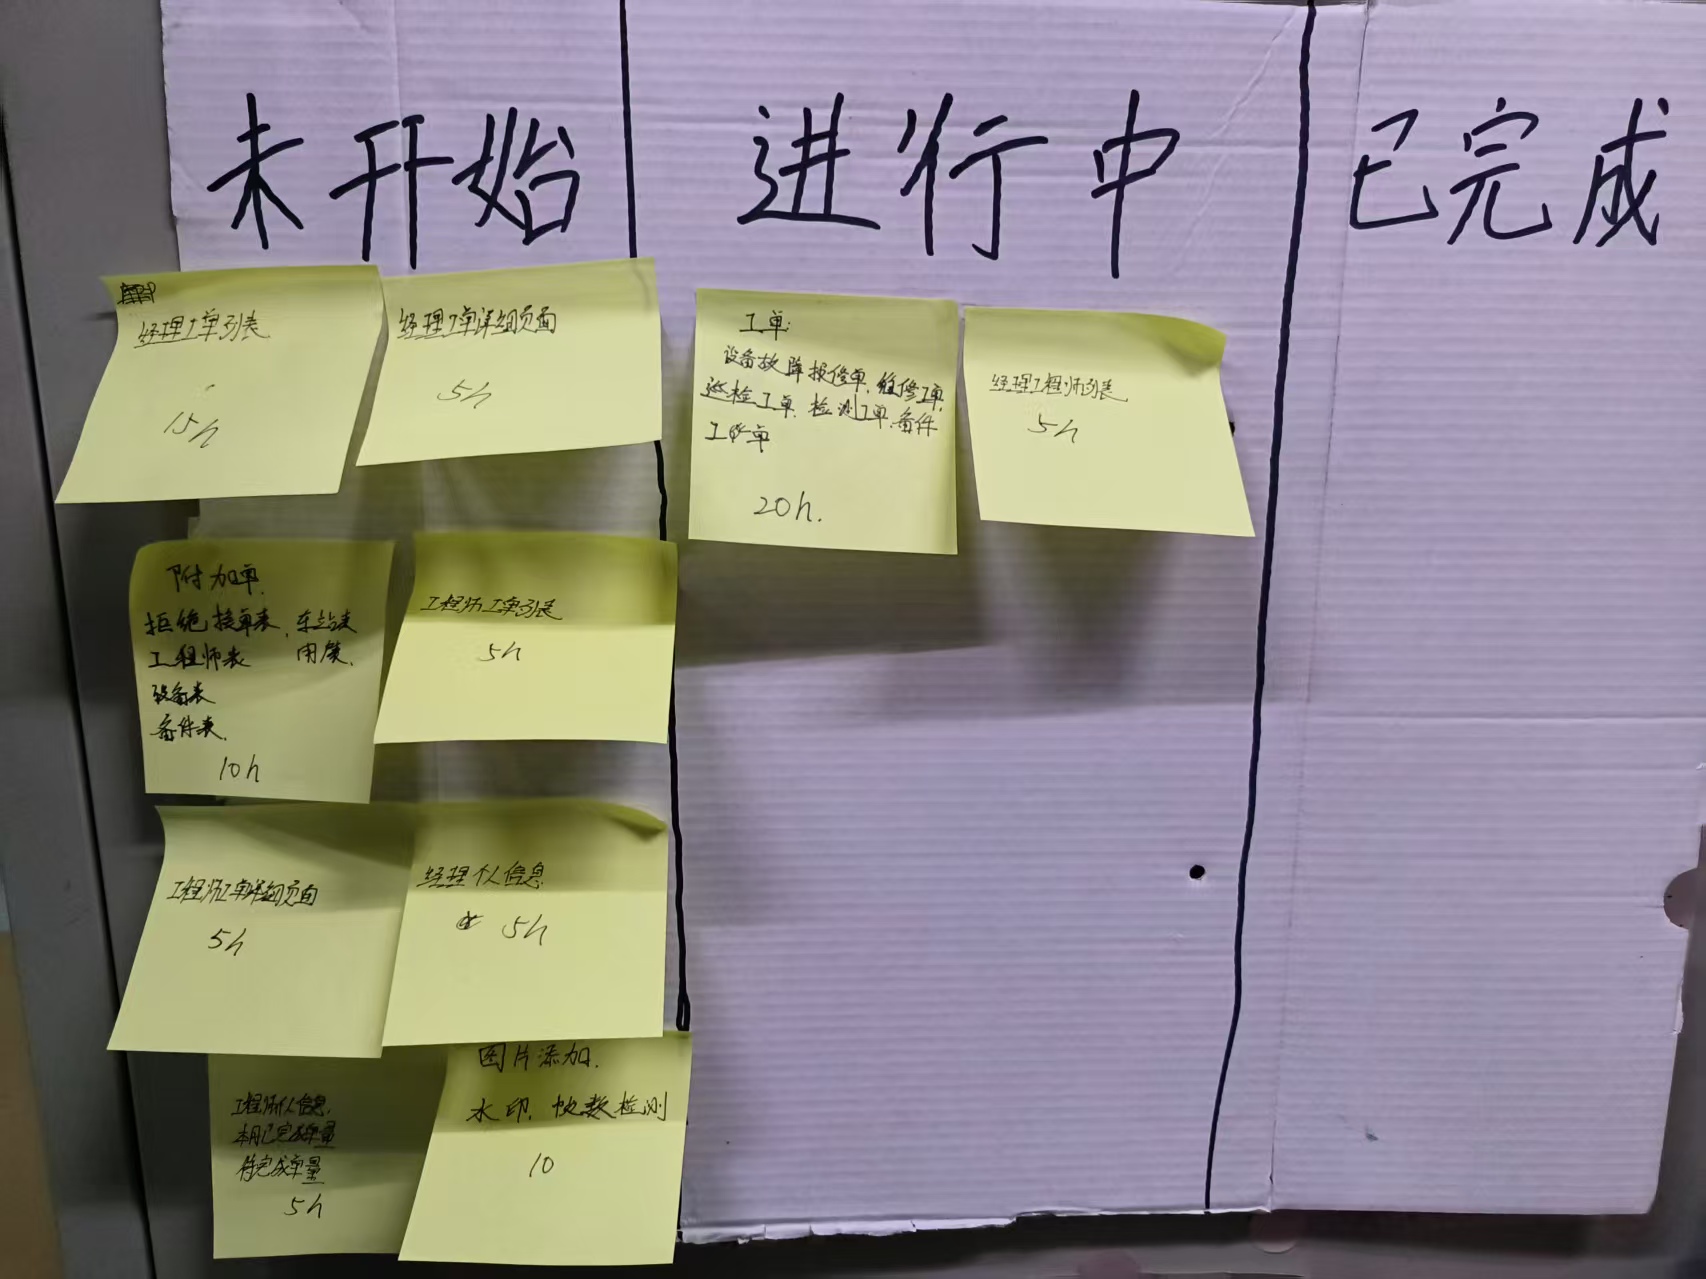 未开始
进行中
已完成
经理工单列表
15h
经理工单详细页面
5h
工单:
设备故障报修单, 维修工单,
巡检工单, 检测工单, 备件
工单
20h.
经理工程师列表
5h
附加单.
拒绝接单表, 车站表
工程师表
设备表
备件表.
10h
工程师工单列表
5h
工程师工单详细页面
5h
经理个人信息
5h
工程师个人信息.
本月已完成单量
待完成单量
5h
图片添加.
水印. 帧数检测
10